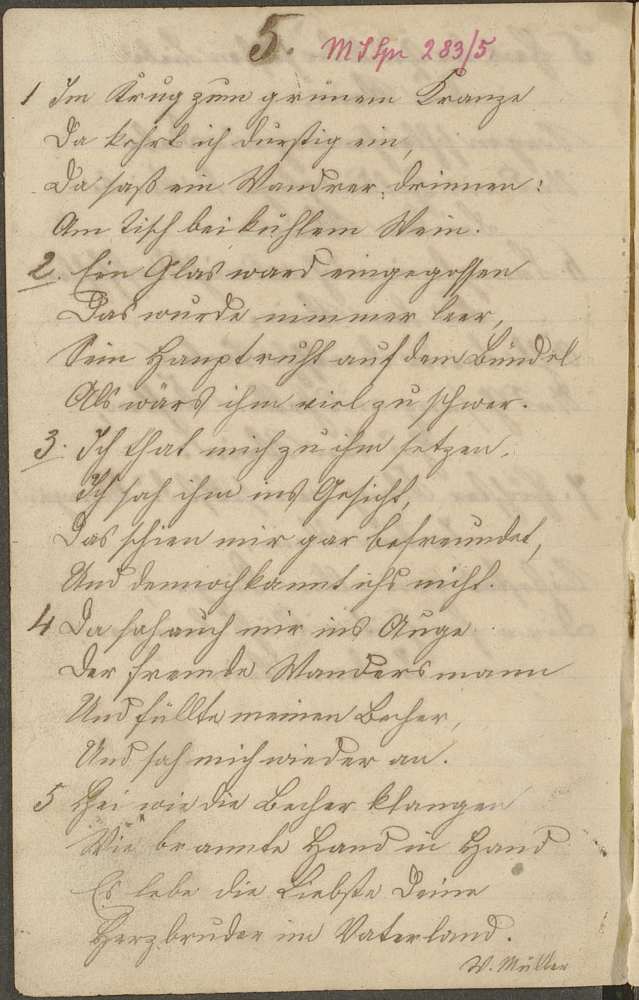 5. MSHn 283/5.
1 Im Krug zum grünem Kranze
Da kehrt ich durstig ein,
Da saß ein Wandrer, drinnen:
Am Tisch bei kühlem Wein.
2. Ein Glas ward eingegossen
Das wurde nimmer leer,
Sein Haupt ruht auf dem Bündel
Als wärs ihm viel zu schwer.
3. Ich that mich zu ihm setzen,
Ich sah ihm ins Gesicht,
Das schien mir gar befreundet,
Und dennoch kannt ichs nicht.
4 Da sah auch mir ins Auge
Der fremde Wandersmann
Und füllte meinen Becher,
Und sah mich wieder an.
5 Hei wie die Becher klangen
Wie brannte Hand in Hand
Es lebe die Liebste Deine
Herzbruder im Vaterland.
W. Müller